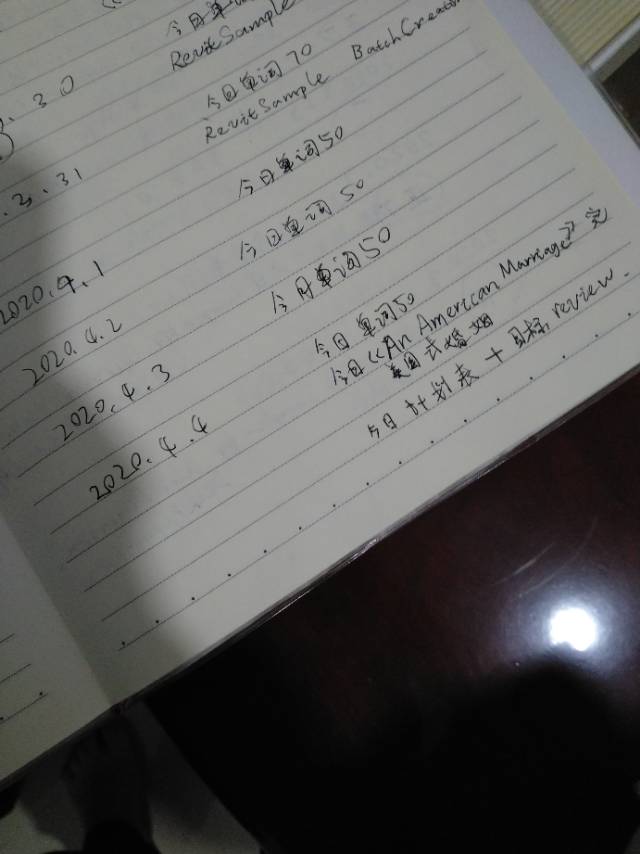 今日单词
RevitSample
3.30 今日单词70
RevitSample BatchCreation
.3.31 今日单词50
2020.4.1 今日单词50
2020.4.2 今日单词50
2020.4.3 今日单词50
今日《An American Marriage》完
美国式婚姻
2020.4.4 今日计划表+目标review.